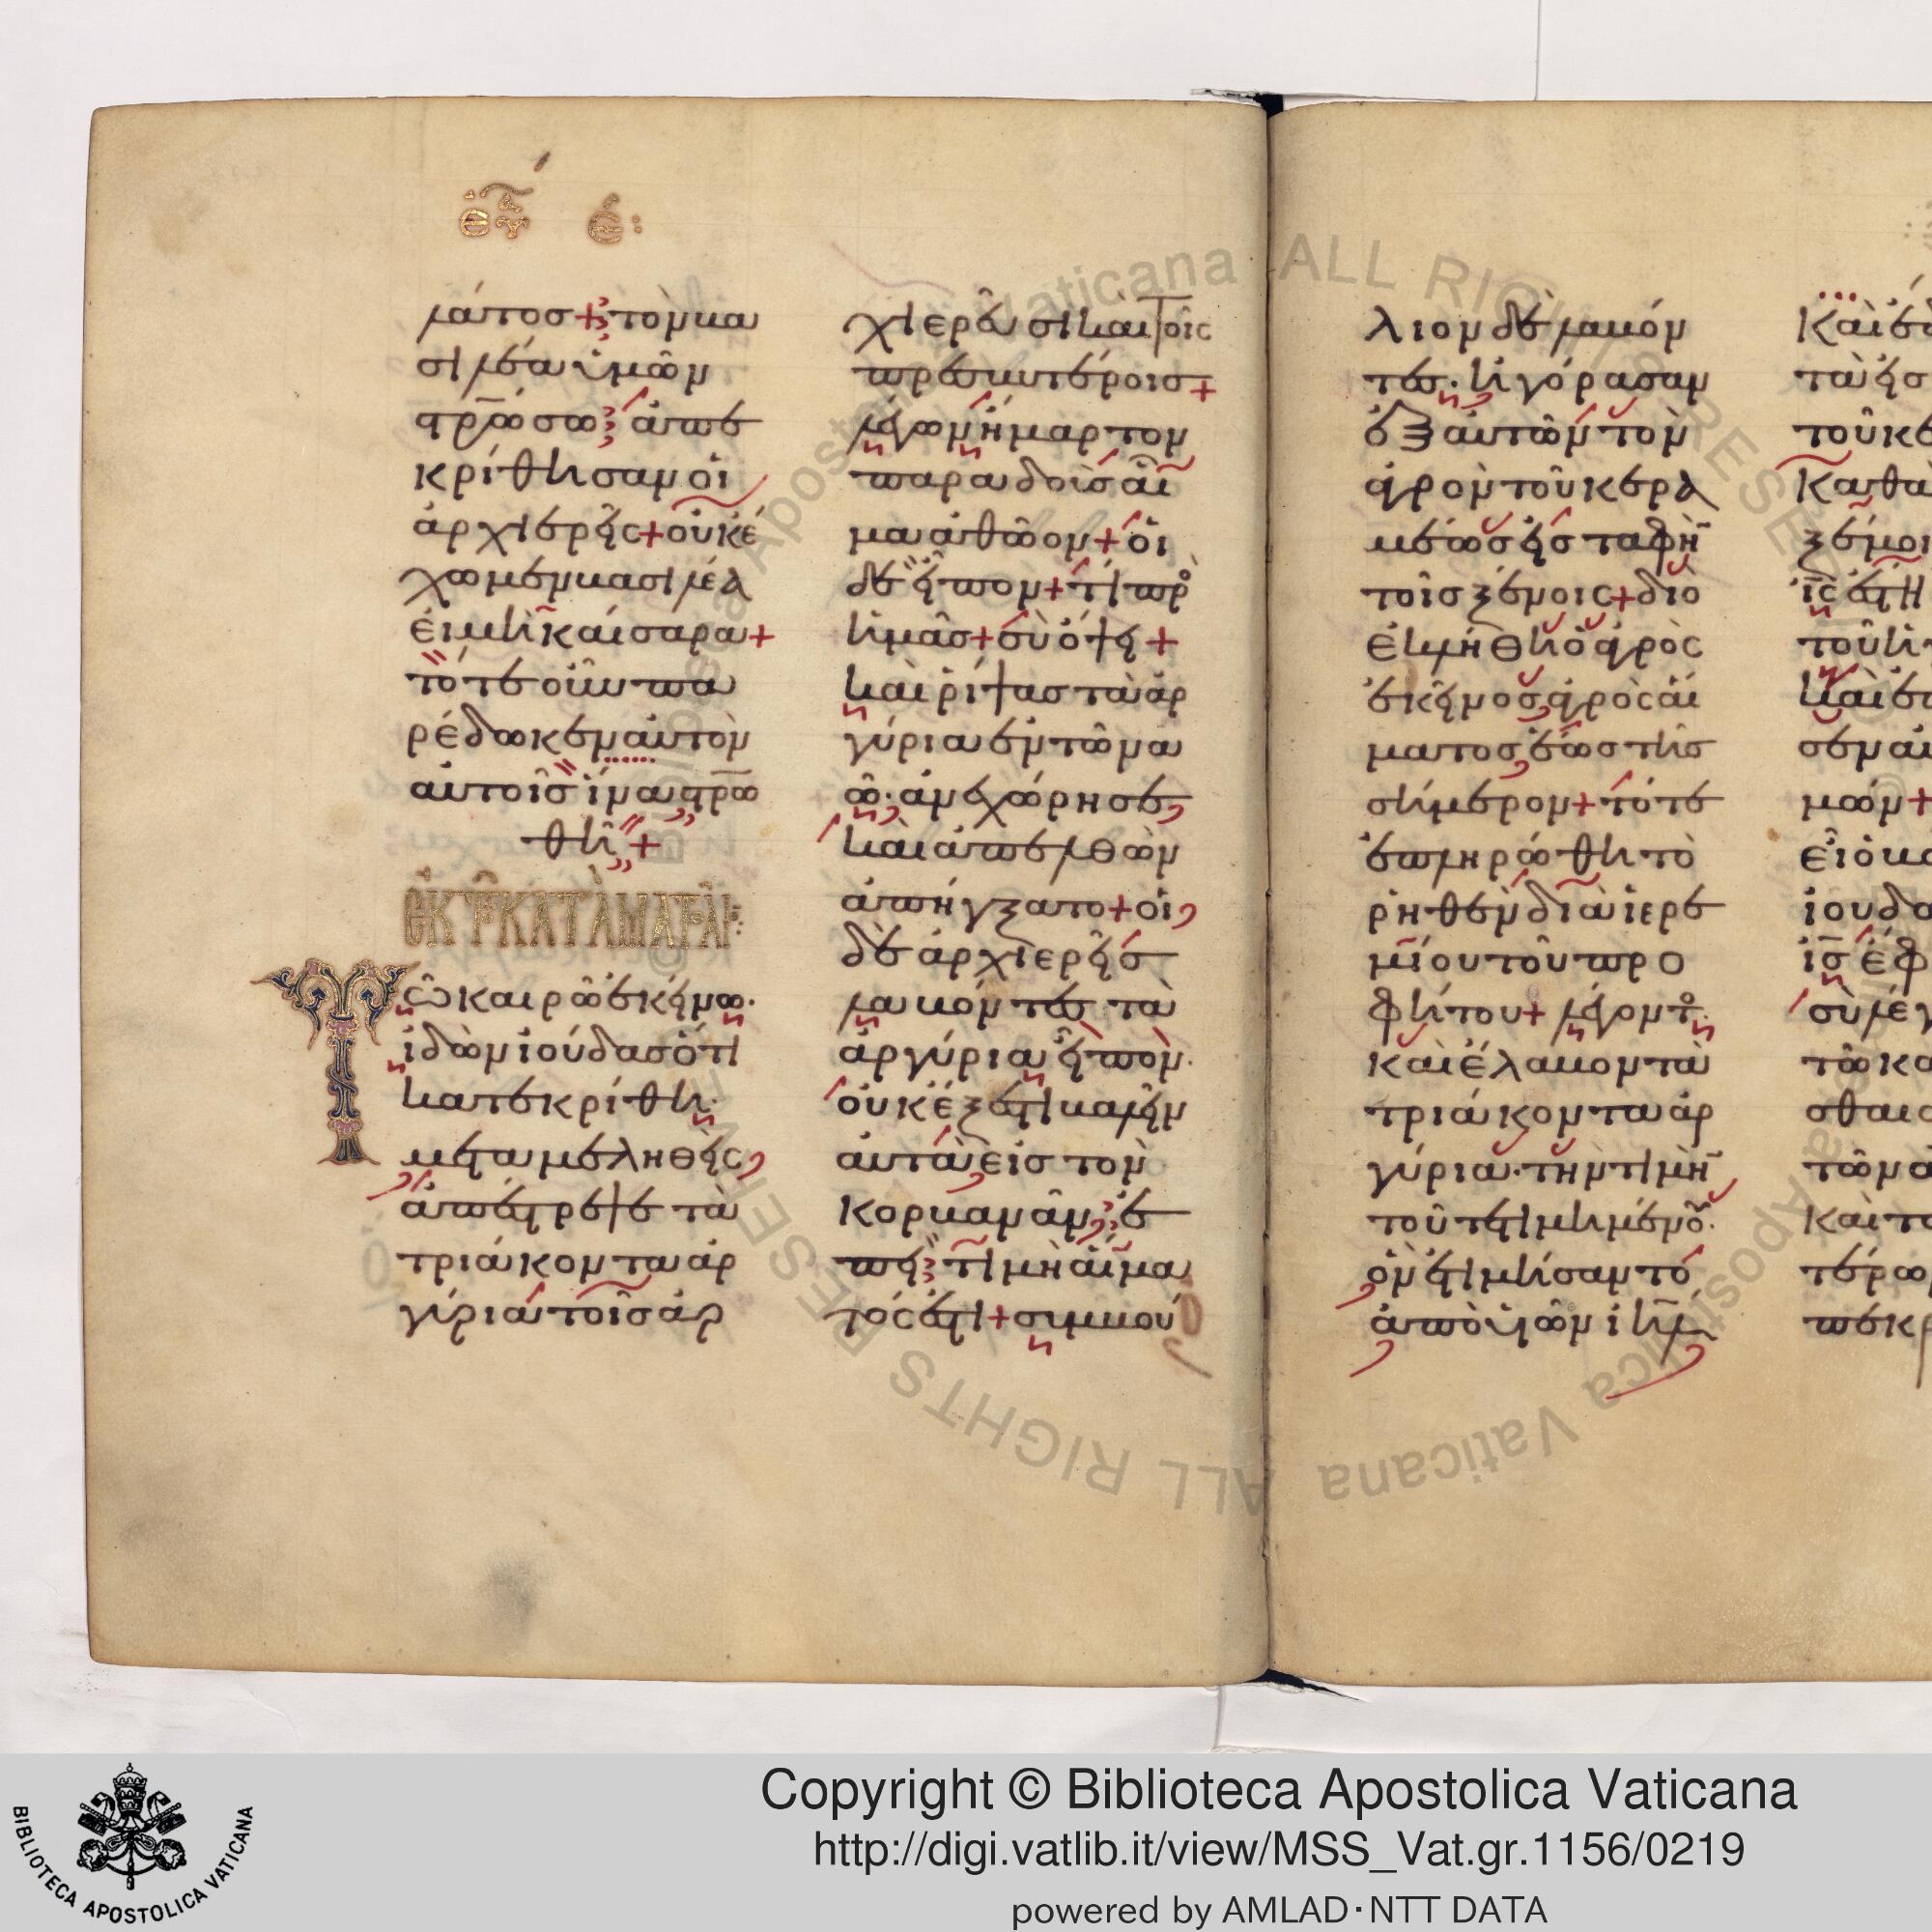 εὐα έ:
λάτος+ τὸν βα
σιλέα ὑμῶν
στρώσω; ἀπε
κρίθησαν οἱ
ἀρχιερεῖς+ οὐκ ἔ
χομεν βασιλέα
εἰ μὴ καίσαρα+
τότε οὖν πα
ρέδωκεν αὐτὸν
αὐτοῖς ἵνα στρω
θῆ+
ἐκ τοῦ κατὰ ματθαῖ:
Τῶ καιρῶ ἐκείνω.
ἰδὼν ἰούδας ὅτι
κατεκρίθη.
μεταμεληθεὶς
ἀπέστρεψε τὰ
τριάκοντα ἀρ
γύρια τοῖς ἀρ
χιερεῦσι καὶ τοῖς
πρεσβυτέροις+
λέγων ἥμαρτον
παραδοὺς αἷ
μα ἀθῶον+ οἱ
δὲ εἶπον+ τί πρὸ
ἡμᾶς+ σὺ ὄψει+
καὶ ῥίψας τὰ ἀρ
γύρια ἐν τῶ να
ῶ. ἀνεχώρησε
καὶ ἀπελθὼν
ἀπήγξατο+ οἱ
δὲ ἀρχιερεῖς
λαβόντες τὰ
ἀργύρια εἶπον.
οὐκ ἔξεστι βαλεῖν
αὐτὰ εἰς τὸν
κορβανᾶν; ἐ
πεὶ τιμὴ αἵμα
τός ἐστι+ συμβού
λιον δὲ λαβόν
τες. ἠγόρασαν
ἐξ αὐτῶν τὸν
ἀγρὸν τοῦ κερα
μέως εἰς ταφὴν
τοῖς ξένοις+ διὸ
ἐκλήθη ὁ ἀγρὸς
ἐκεῖνος ἀγρὸς αἵ
ματος ἕως τῆς
σήμερον+ τότε
ἐπληρώθη τὸ
ῥηθὲν διὰ ἱερε
μίου τοῦ προ
φήτου+ λέγοντος.
καὶ ἔλαβον τὰ
τριάκοντα ἀρ
γύρια. τὴν τιμὴν
τοῦ τετιμημένου.
ὃν ἐτιμήσαντο
ἀπὸ υἱῶν ἰηλ
Copyright © Biblioteca Apostolica Vaticana
http://digi.vatlib.it/view/MSS_Vat.gr.1156/0219
powered by AMLAD·NTT DATA
BIBLIOTECA APOSTOLICA VATICANA